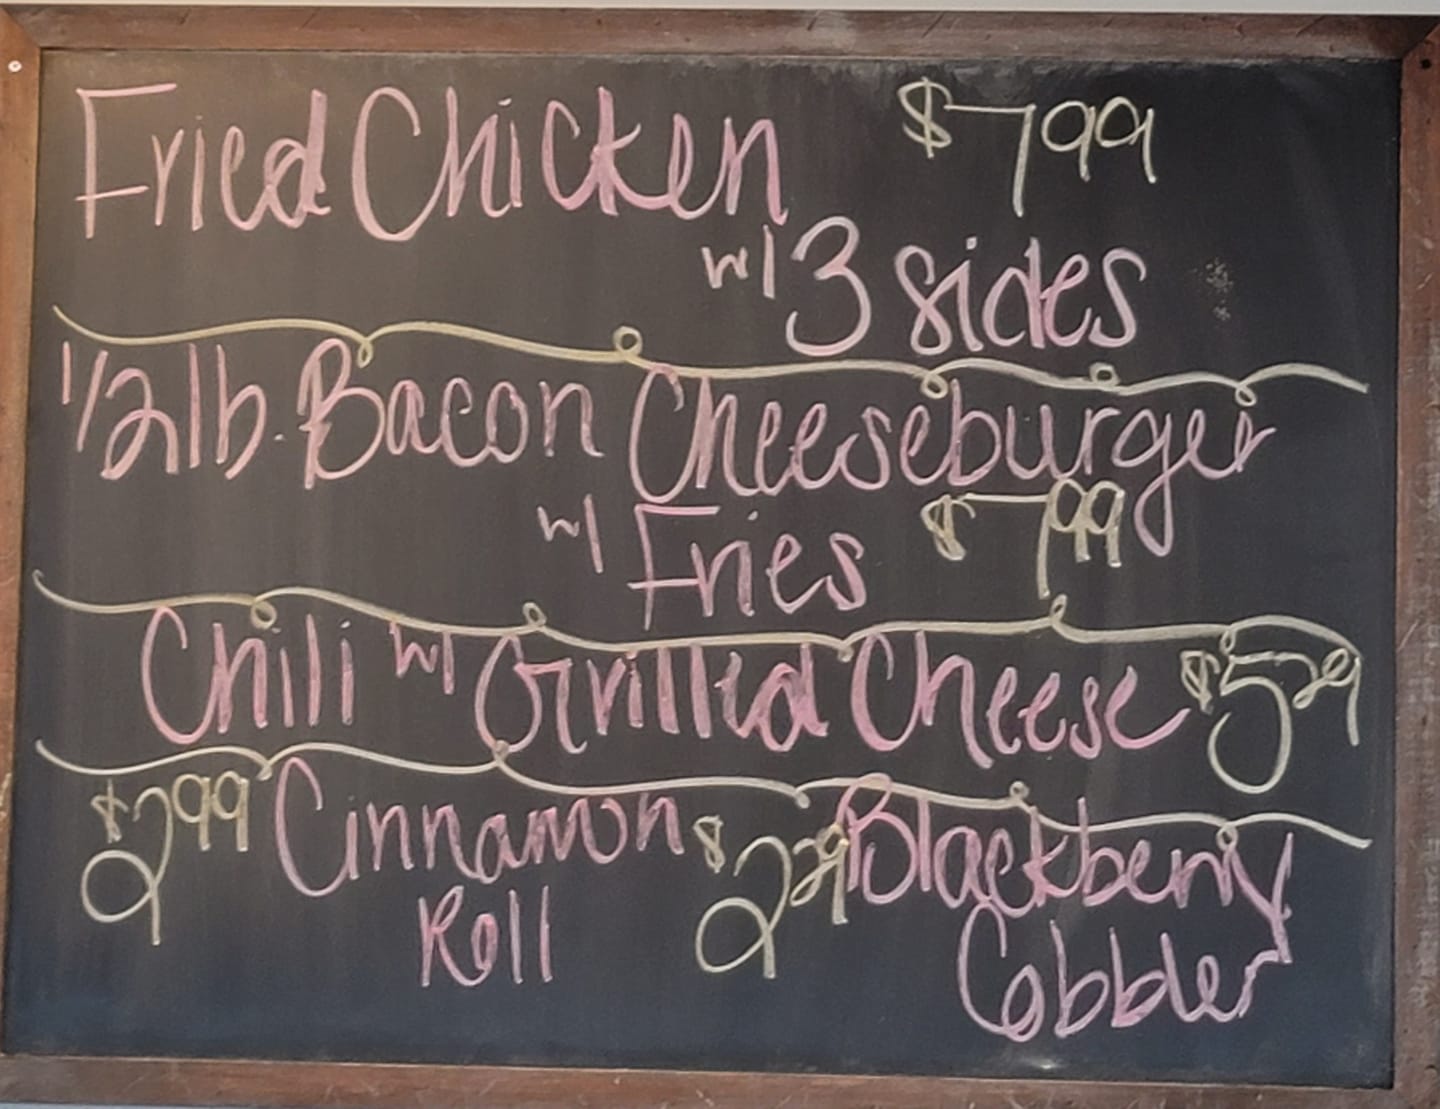 Fried Chicken $799
w/ 3 sides
1/2 lb. Bacon Cheeseburger
w/ Fries $799
Chili w/ Grilled Cheese $529
$299 Cinnamon $229 Blackberry
Roll Cobbler